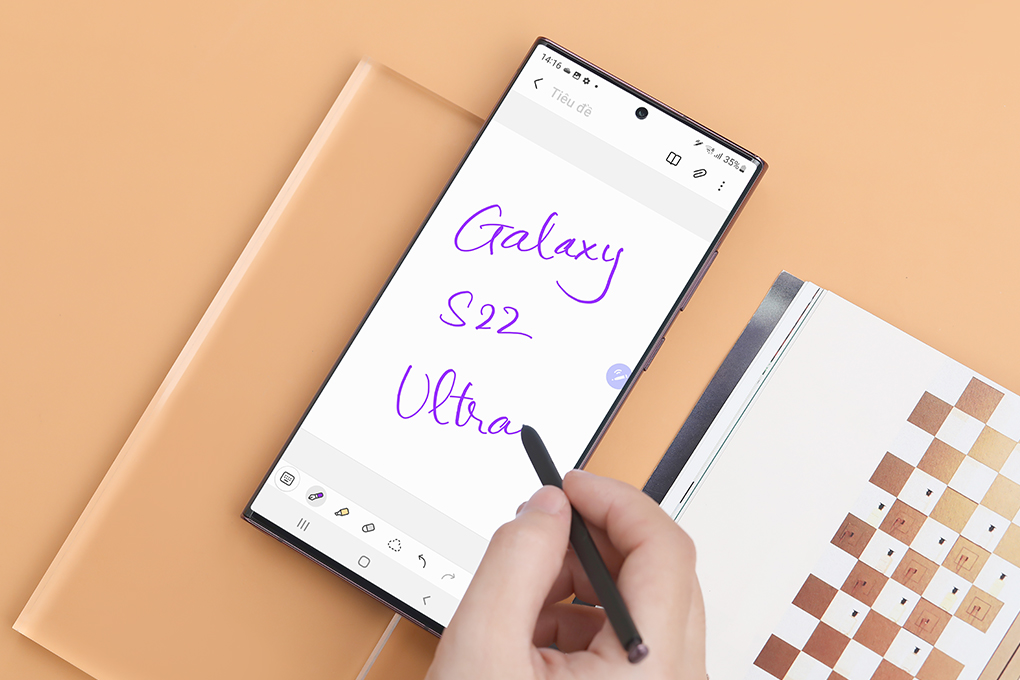 14:16
35%
Tiêu đề
Galaxy
S22
Ultra